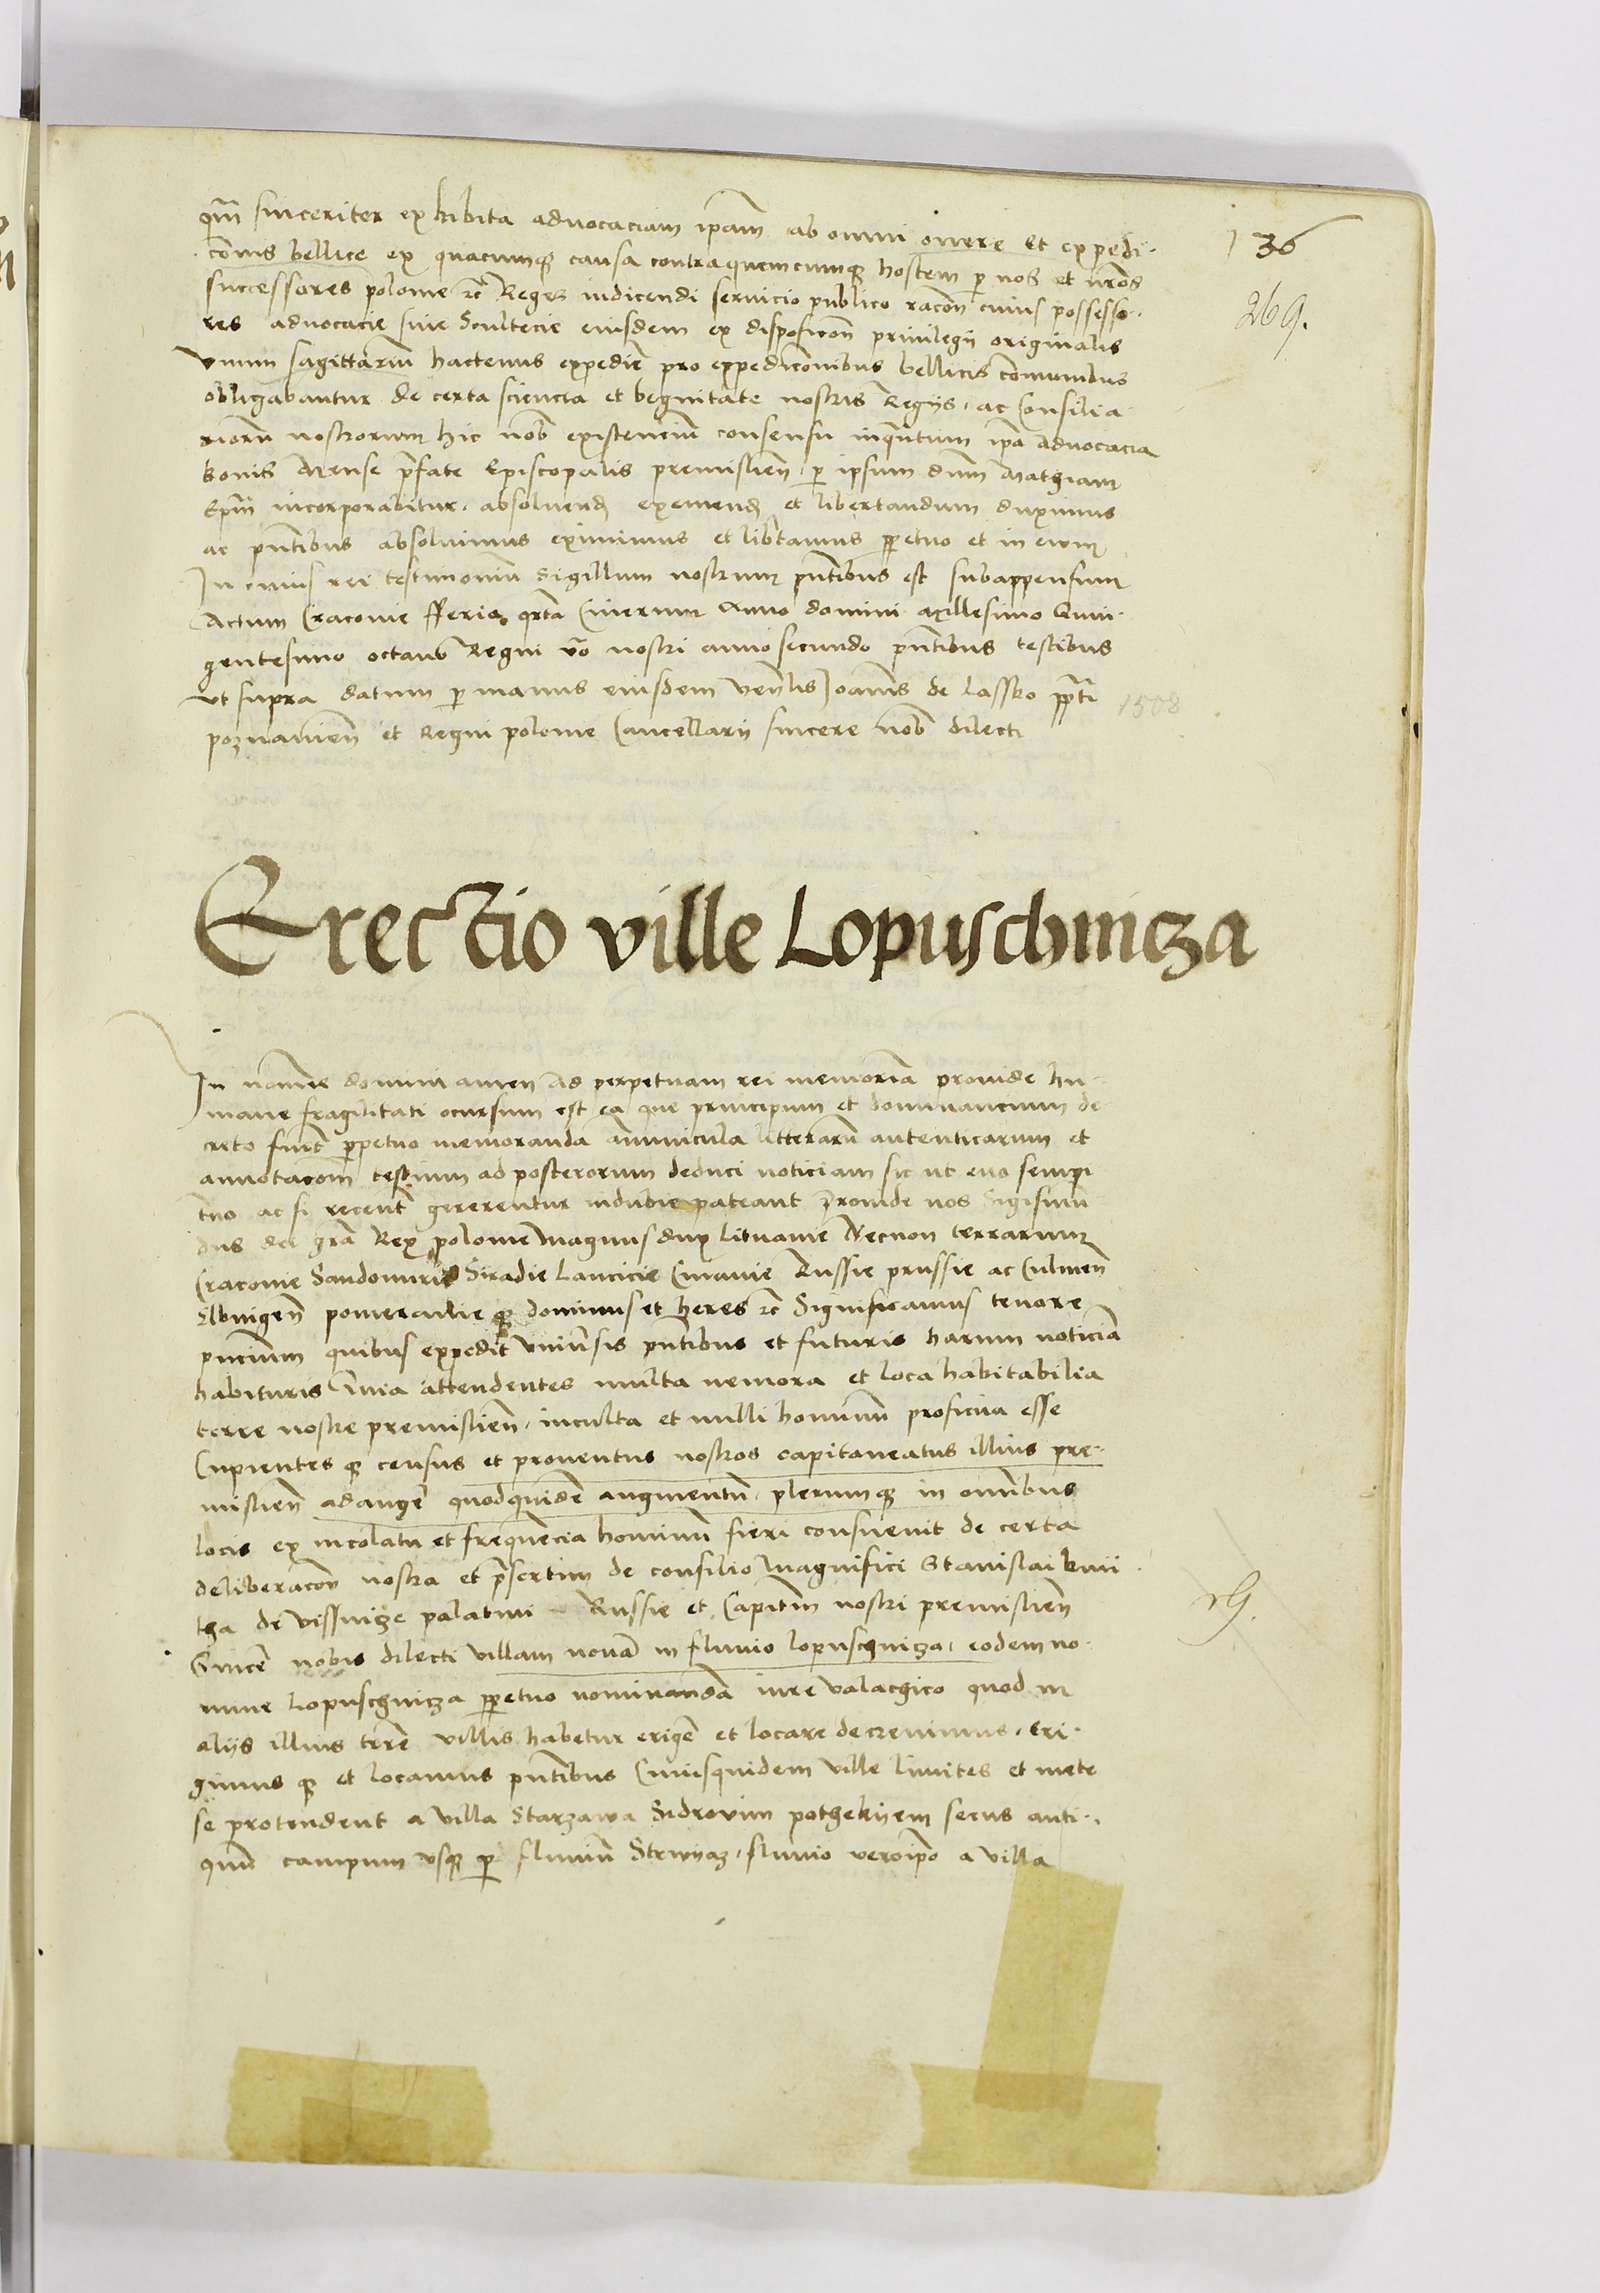 136
269.
qm̃ sinceriter exhibita advocaciam ip̃am ab omni onere et expedi-
cõnis bellice ex quacumq₃ causa contra quemcumq₃ hostem p nob̃ et nr̃os
successores polonie zc̃ Reges indicendi servicio publico racõn cuius possesso-
res advocacie sive Scultecie eiusdem ex disposicõn privilegii originalis
Unum sagittariũ hactenus expedir̃ pro expedicõnibus bellicis cõmunibus
obligabantur de certa sciencia et begnitate nostris Regiis, ac Consilia
riorũ nostrorum hic nob̃ existenciũ consensu inq̃ntum ip̃a advocacia
bonis Mense p̃fate Episcopalis premislieñ p ipsum dñm Mathiam
Ep̃m incorporabitur, absolvend̃ eximend̃ et libertandum duximus
ac p̃ntibus absolvimus eximimus et lib̃tamus ppetuo et in evum
In cuius rei testimoniũ Sigillum nostrum p̃ntibus est subappensum
Actum Cracovie fferia qr̃ta Cinerum Anno domini Millesimo Quin-
gentesimo octavo Regni v̊o nostri anno secundo p̃ntibus testibus
ut supra datum p manus eiusdem Ven̄lis Joan̄is de Lassko pp̃ti
poznanieñ et Regni polonie Cancellarii sincere nob̃ dilecti
1508
Erectio ville Lopuschnicza
In nomine domini amen Ad perpetuam rei memoriã provide hu-
mane fragilitati ocursum est ea que principum et dominancium de
creto fiũt ppetuo memoranda amminicula litterarũ autenticarum et
annotacõm testium ad posterorum deduci noticiam sic ut evo sempi
t̃no ac si recent̃ gererentur indubie pateant Proinde nos Sigismũ
dus dei gr̃a Rex polonie Magnus dux Lituanie Necnon terrarum
Cracovie Sandomirie Siradie Lancicie Cuiavie Russie prussie ac Culmeñ
Elbingeñ pomeranie q₃ dominus et heres zc̃ Significamus tenore
pñcium quibus expedit univ̊sis p̃ntibus et futuris harum noticiã
habituris Quia attendentes multa nemora et loca habitabilia
terre nostre premislieñ inculta et nulli hominũ proficua esse
Cupientes q₃ census et proventus nostros capitaneatus illius pre-
mislieñ adauger̃ quodquidẽ augmentũ plerumq₃ in om̃nibus
locis ex incolatu et frequencia hominũ fieri consuevit de certa
deliberacõn nostra et p̃sertim de consilio Magnifici Stanislai kmi-
tha de Vissnicze palatini Russie et Capitñi nostri premislieñ
Sincer̃ nobis dilecti villam novã in fluvio lopuschnicza, eodem no-
mine Lopuschnicza ppetuo nominandã iure valachico quod in
aliis illius terre villis habetur eriger̃ et locare decrevimus, Eri-
gimus q₃ et locamus p̃ntibus Cuiusquidem ville limites et mete
se protendent a villa Starzawa Sidrovim pothekiem secus anti-
quũ campum usq₃ p fluviũ Strwyaz, fluvio vero ip̃o a villa